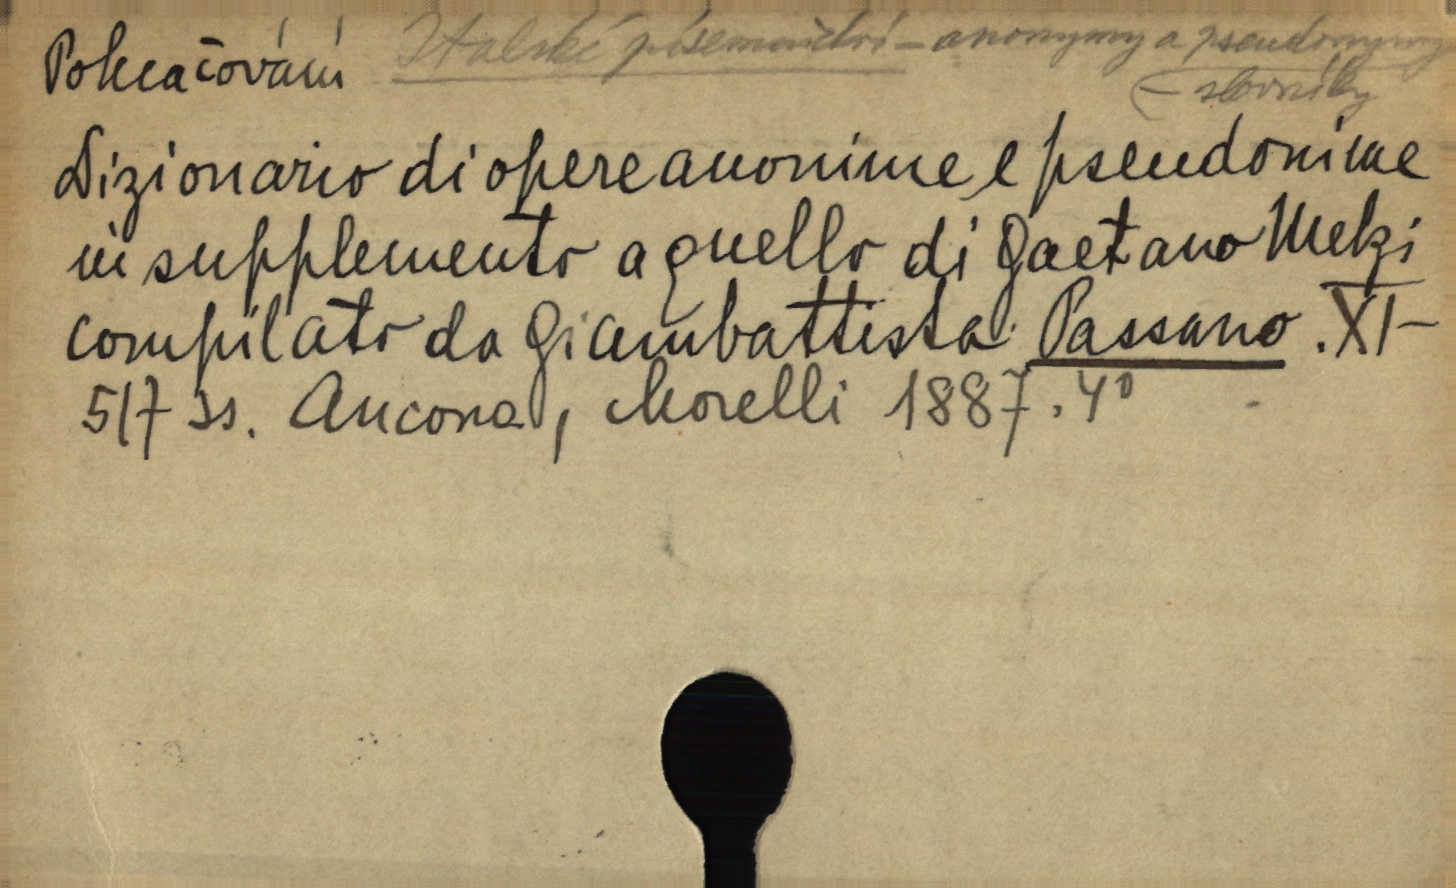 Pokračování
Italské písemnictví – anonymy a pseudonymy
(– slovníky
Dizionario di opere anonime e pseudonime
in supplemento a quello di Gaetano Melzi
compilato da Giambattista Passano. XI–
517 ss. Ancona, Morelli 1887. 4°